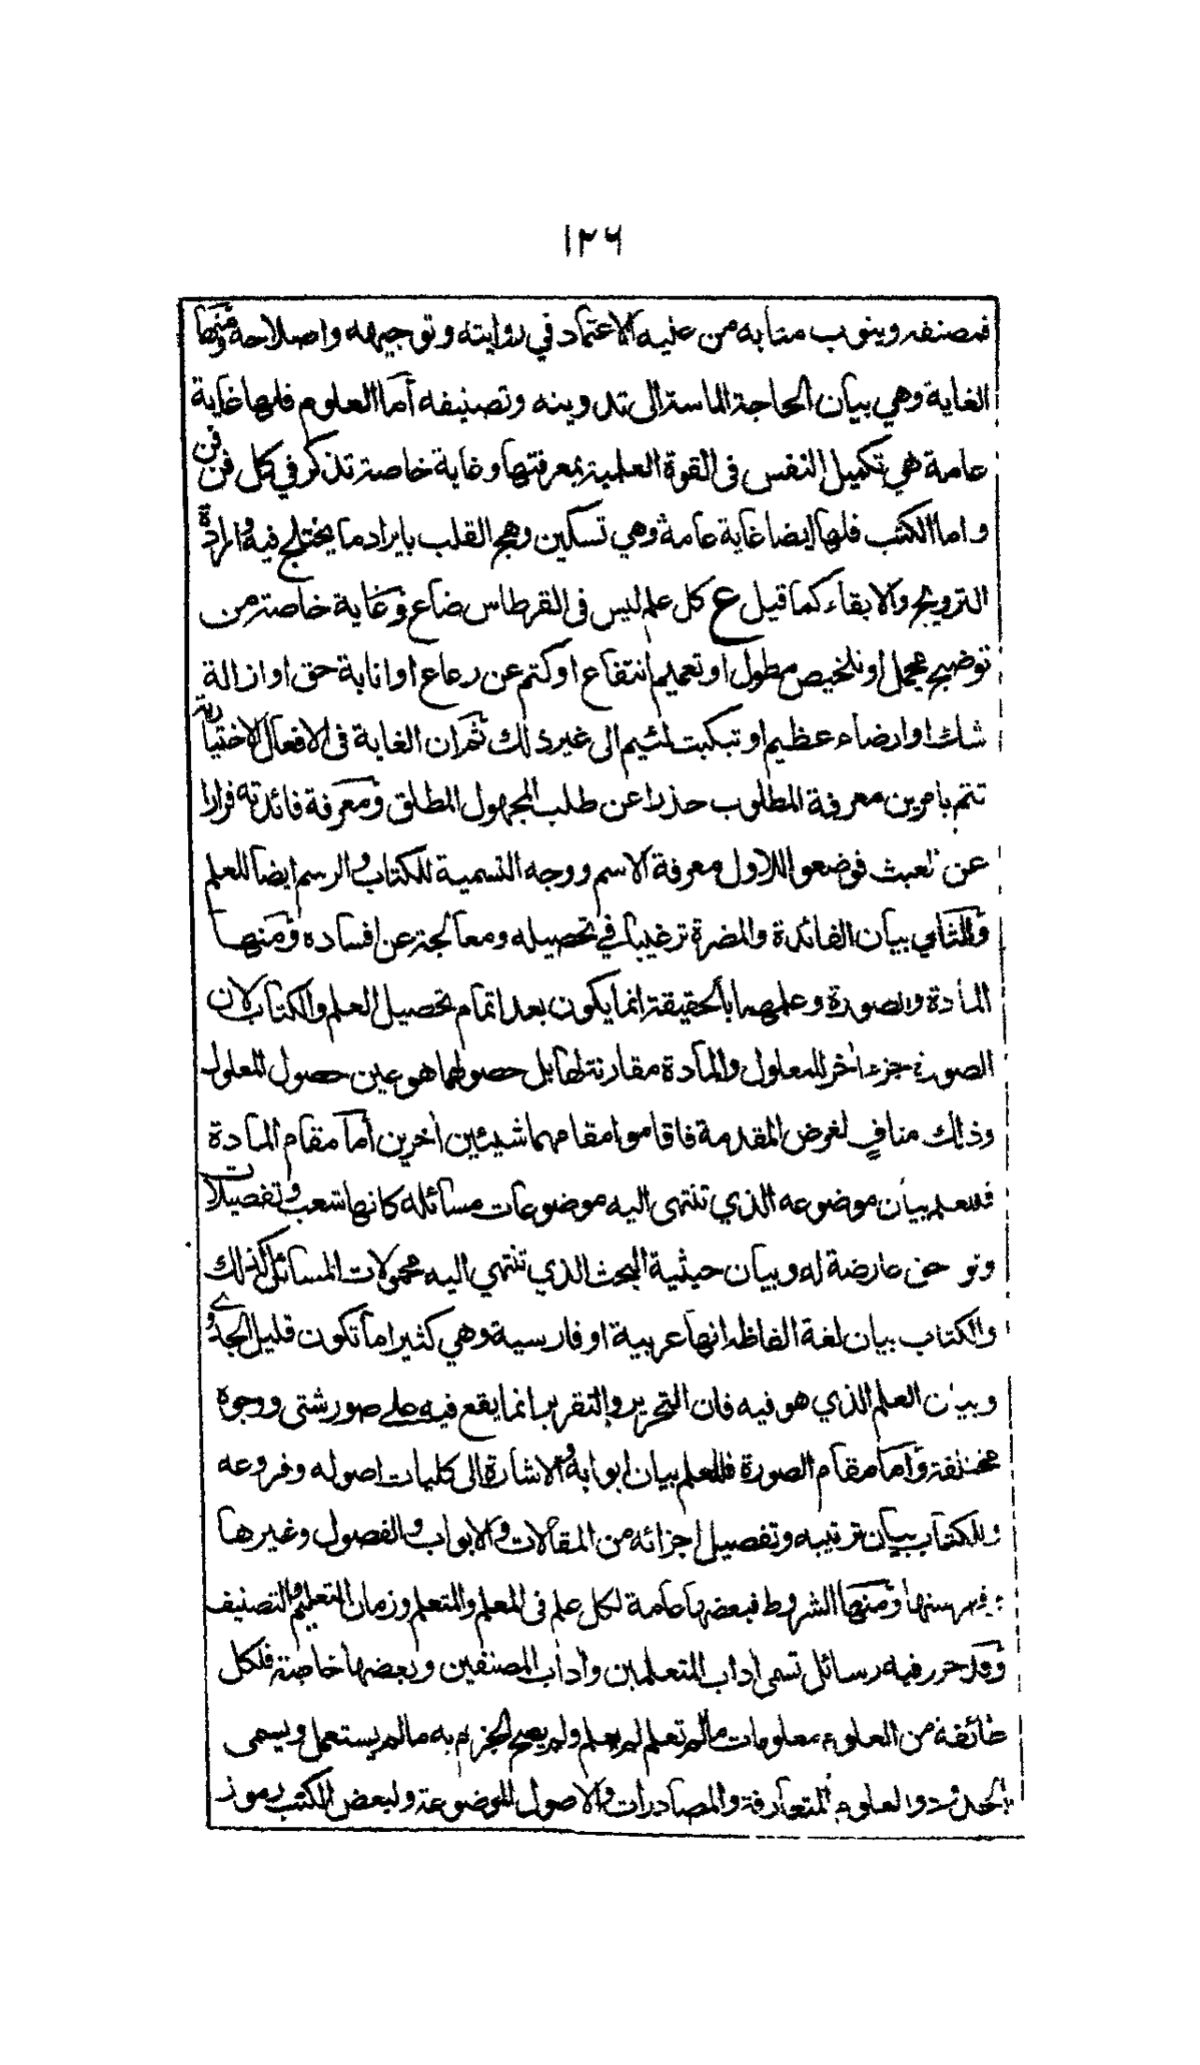 ١٢٦
فمصنفه وينوب منابه من عليه الاعتماد في روايته وتوجيهه واصلاحه ومنها
الغاية وهي بيان الحاجة الماسة الى تدوينه وتصنيفه أما العلوم فلها غاية
عامة هي تكميل النفس فى القوة العلمية بمعرفتها وغاية خاصة تذكر في كل فن فن
واما الكتب فلها ايضا غاية عامة وهي تسكين وهج القلب بايراد ما يختلج فيه وارادة
الترويج والابقاء كما قيل ع كل علم ليس فى القرطاس ضاع وغاية خاصة من
توضيح مجمل او تلخيص مطول او تعميم انتفاع او كتم عن رعاع او انابة حق او ازالة
شك او ارضاء عظيم او تبكيت لئيم الى غير ذلك ثم ان الغاية فى الافعال الاختيارية
تتم بامرين معرفة المطلوب حذرا عن طلب المجهول المطلق ومعرفة فائدته فرارا
عن العبث فوضعوا للاول معرفة الاسم ووجه التسمية للكتاب والرسم ايضا للعلم
وللثاني بيان الفائدة والمضرة ترغيبا في تحصيله ومعالجة عن افساده ومنها
المادة والصورة وعلمهما بالحقيقة انما يكون بعد اتمام تحصيل العلم والكتاب لان
الصورة جزء اخر للمعلول والمادة مقارنتها بل حصولهما هو عين حصول المعلول
وذلك منافٍ لغرض المقدمة فاقاموا مقامهما شيئين اخرين أما مقام المادة
فللعلم بيان موضوعه الذي تنتهى اليه موضوعات مسائله كانها شعب وتفصيلات
ولواحق عارضة له وبيان حيثية البحث الذي تنتهي اليه محمولات المسائل كذلك
وللكتاب بيان لغة الفاظه انها عربية او فارسية وهي كثيرا ما تكون قليل الجدوى
وبيان العلم الذي هو فيه فان التحرير والتقرير انما يقع فيه على صور شتى ووجوه
مختلفة وأما مقام الصورة فللعلم بيان ابوابه والاشارة الى كليات اصوله وفروعه
وللكتاب بيان ترتيبه وتفصيل اجزائه من المقالات والابواب والفصول وغيرها
بفهرستها ومنها الشروط فبعضها عامة لكل علم فى المعلم والمتعلم وزمان التعليم والتصنيف
وقد حرر فيه رسائل تسمى اداب المتعلمين واداب المصنفين وبعضها خاصة فلكل
طائفة من العلوم معلومات ما لم تعلم لم يعلم ولم يصح الجزم به ما لم يستعمل ويسمى
بالحدود والعلوم المتعارفة والمصادرات والاصول الموضوعة ولبعض الكتب رموز